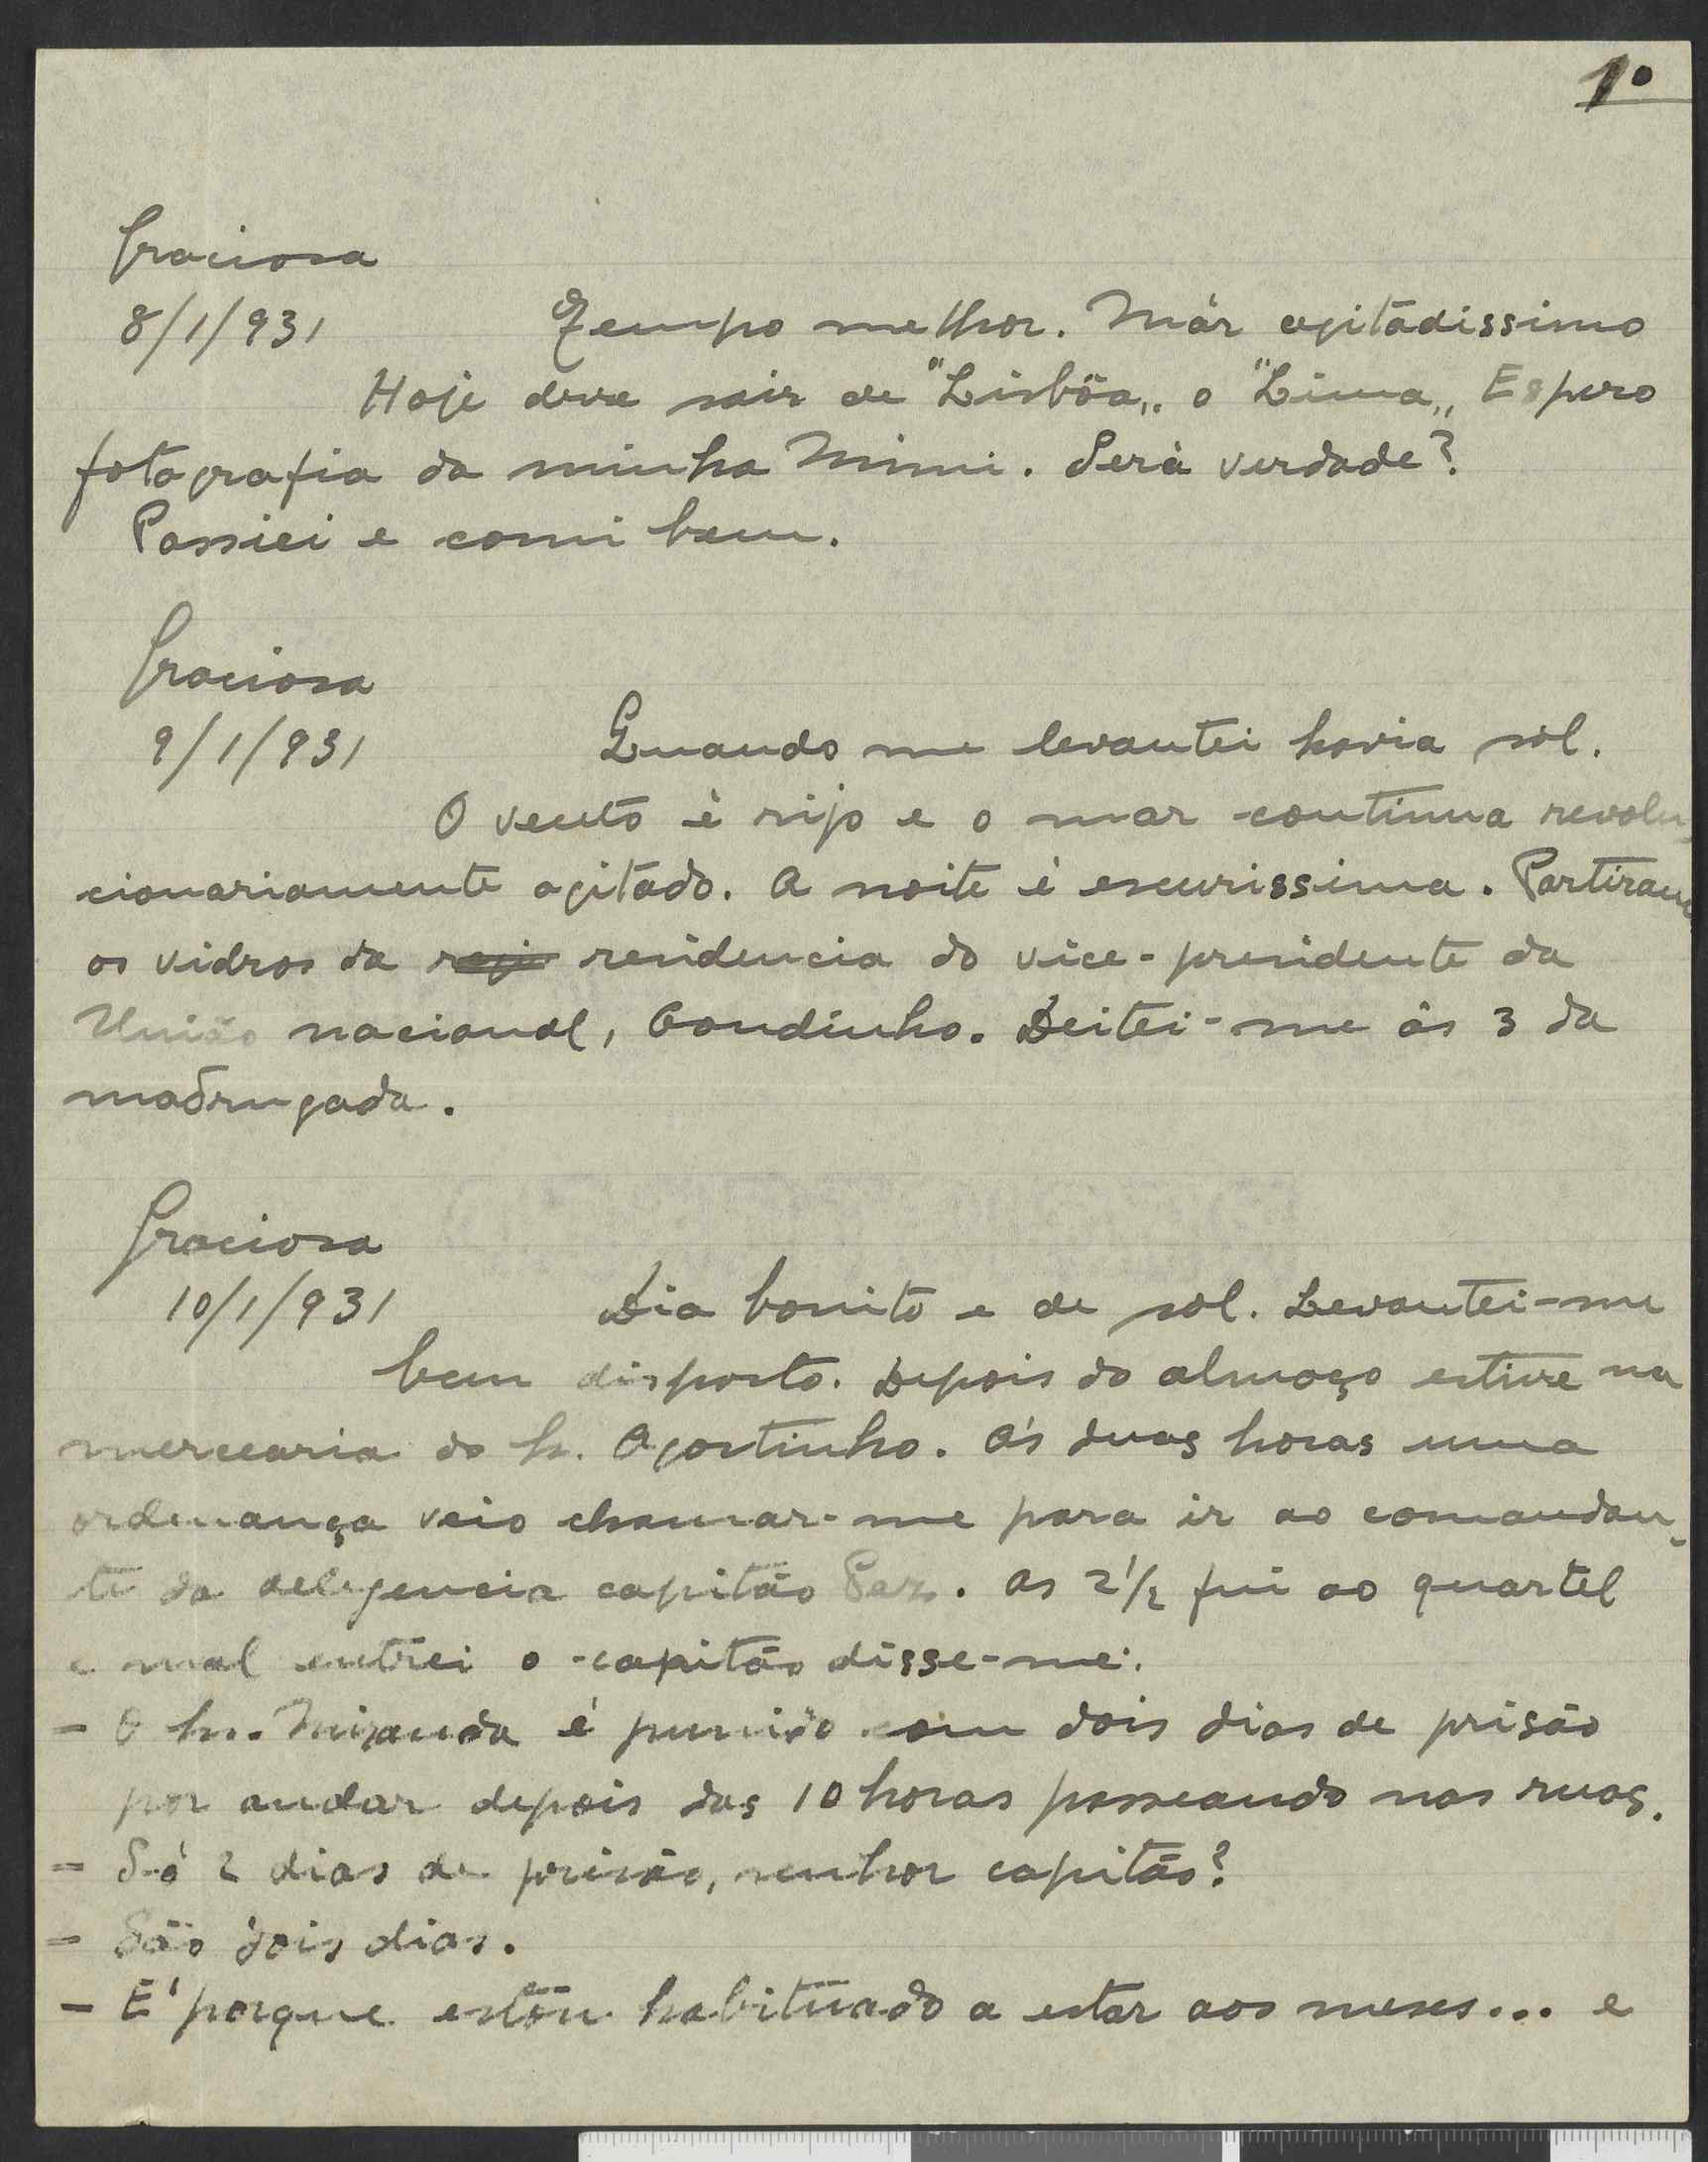 1º
Graciosa
8/1/931 Tempo melhor. Már agitádissimo
Hoje deve sair de "Lisbôa" o "Lima" Espero
fotografia da minha Mimi. Será verdade?
Passiei e comi bem.
Graciosa
9/1/931 Quando me levantei havia sol.
O vento è rijo e o mar continua revolu-
cionariamente agitado. A noite é escurissima. Partiram
os vidros da residencia do vice-presidente da
União nacional, Condinho. Deitei-me ás 3 da
madrugada.
Graciosa
10/1/931 Dia bonito e de sol. Levantei-me
bem disposto. Depois do almoço estive na
mercearia do Sr. Agostinho. Ás duas horas uma
ordenança veio chamar-me para ir ao comandan-
te da delegencia capitão Paz. As 2 1/2 fui ao quartel
e mal entrei o capitão disse-me:
- O Sr. Miranda é punido com dois dias de prisão
por andar depois das 10 horas passeando nas ruas.
= Só 2 dias de prisão, senhor capitão?
= São dois dias.
- É porque estou habituado a estar aos meses... e